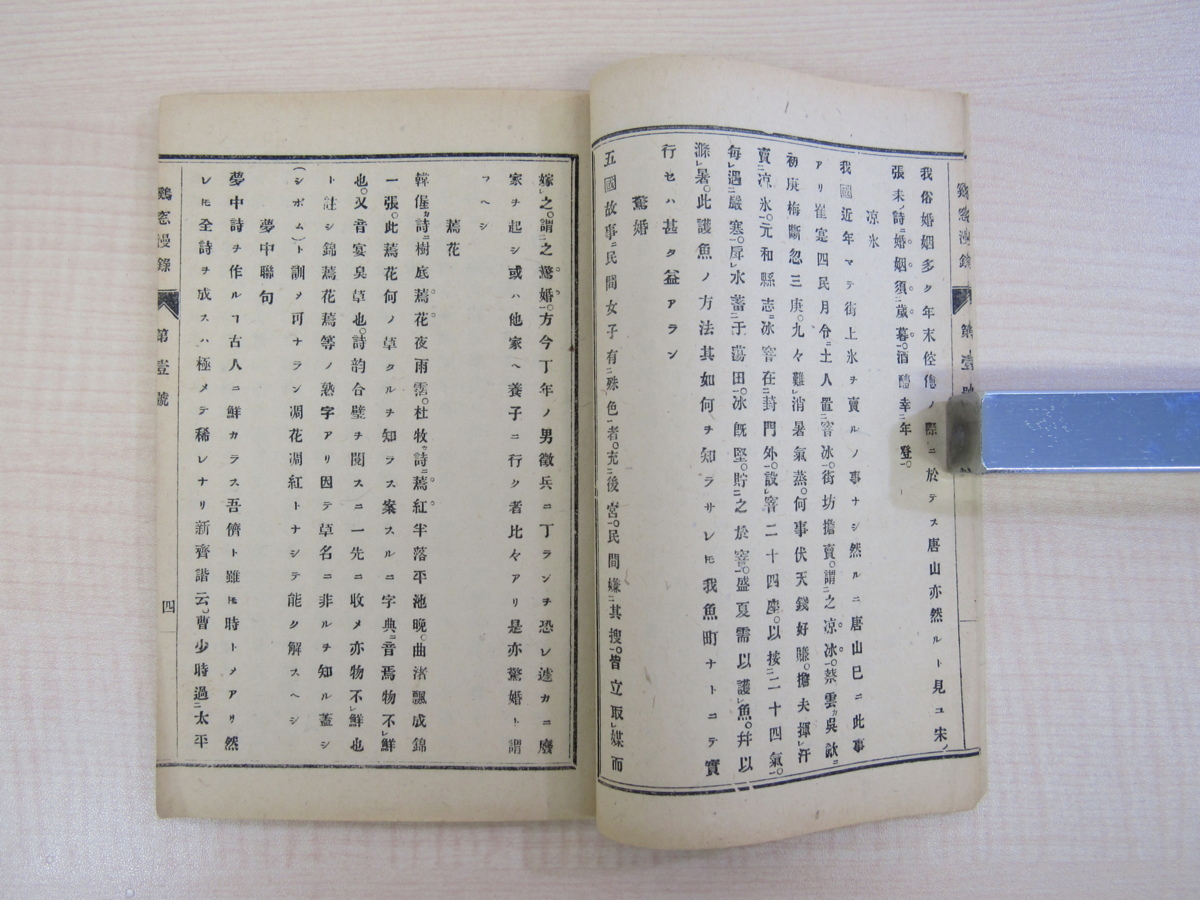 我俗婚姻多ク年末倥偬ノ際ニ於テス唐山亦然ルト見ユ宋ノ
張耒詩ニ婚姻須歳暮。酒醴幸年登。
凉氷
我國近年マテ街上氷ヲ賣ルノ事ナシ然ルニ唐山已ニ此事
アリ崔寔四民月令ニ土人置窨氷。街坊擔賣。謂之凉氷。蔡雲カ吳歈ニ
初庚梅斷忽三庚。九々難消暑氣蒸。何事伏天錢好賺。擔夫揮汗
賣凉氷。元和縣志ニ冰窨在葑門外。設窨二十四座。以按二十四氣。
每遇嚴寒。戽水蓄于蕩田。冰旣堅。貯之於窨。盛夏需以護魚。幷以
滌暑。此護魚ノ方法其如何ヲ知ラサレトモ我魚町ナトニテ實
行セハ甚タ益アラン
驚婚
五國故事ニ民間女子有殊色者。充後宮。民間嫌其搜。皆立取媒而
嫁之。謂之驚婚。方今丁年ノ男徵兵ニ丁ランヲ恐レ遽カニ廢
家ヲ起シ或ハ他家ヘ養子ニ行ク者比々アリ是亦驚婚ト謂
フヘシ
蔫花
韓偓カ詩ニ樹底蔫花夜雨霑。杜牧カ詩ニ蔫紅半落平池晚。曲渚飄成錦
一張。此蔫花何ノ草タルヲ知ラス案スルニ字典ニ音焉物不鮮
也。又音宴臭草也。詩韵合璧ヲ閱スニ一先ニ收メ亦物不鮮也
ト註シ錦蔫花蔫等ノ熟字アリ因テ草名ニ非ルヲ知ル蓋シ
(シボム)ト訓メ可ナラン凋花凋紅トナシテ能ク解スヘシ
夢中聯句
夢中詩ヲ作ルヿ古人ニ鮮カラス吾儕ト雖トモ時トメアリ然
レトモ全詩ヲ成スハ極メテ稀レナリ新齊諧云。曹少時過太平
鷄窓漫錄 第壹號 四